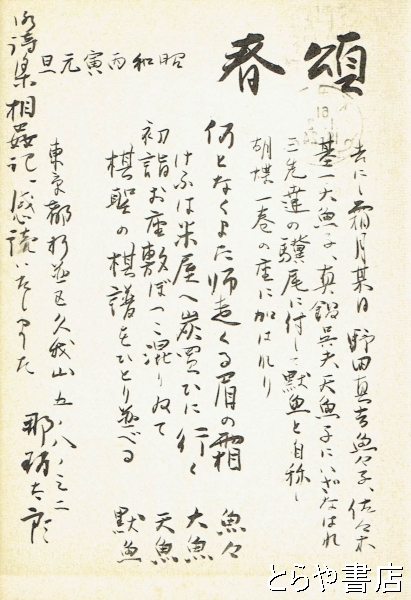 頌春
昭和丙寅元旦
去にし霜月某日 野田真吉魚々子、佐々木
基一大魚子、真鍋呉夫天魚子にいざなはれ
三先達の驥尾に付して黙魚と自称し
胡蝶一巻の座に加はれり
何となくよた師走くる眉の霜 魚々
けふは米屋へ炭買ひに行く 大魚
初詣お座敷ぽつこ混りゐて 天魚
棋聖の棋譜をひとり並べる 黙魚
東京都杉並区久我山五ノ八ノ
那珂太郎
御詩集相姦記、感読いたしました
とらや書店